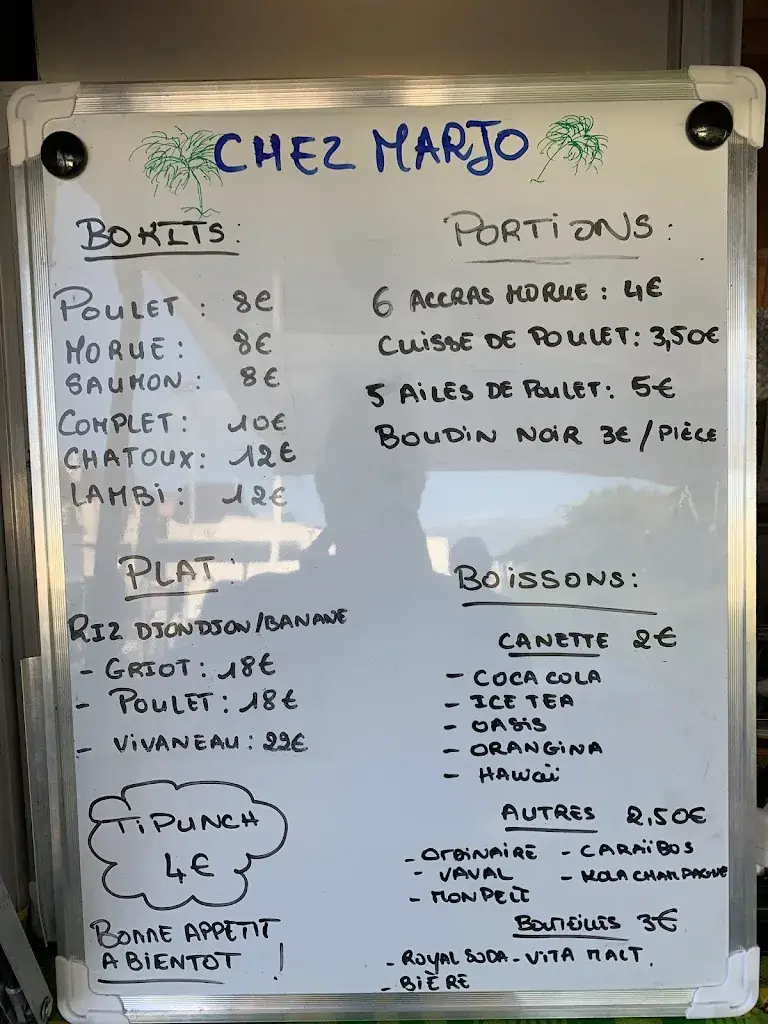 CHEZ MARJO
BOKITS:
POULET : 8€
MORUE : 8€
SAUMON : 8€
COMPLET : 10€
CHATOUX : 12€
LAMBI : 12€
PORTIONS :
6 ACCRAS MORUE : 4€
CUISSE DE POULET : 3,50€
5 AILES DE POULET : 5€
BOUDIN NOIR 3€ / PIÈCE
PLAT :
RIZ DJONDJON/BANANE
- GRIOT : 18€
- POULET : 18€
- VIVANEAU : 22€
TI PUNCH
4€
BONNE APPETIT
A BIENTOT !
BOISSONS :
CANETTE 2€
- COCA COLA
- ICE TEA
- OASIS
- ORANGINA
- HAWAÏ
AUTRES 2,50€
- ORDINAIRE - CARAÏBOS
- VAVAL - KOLA CHAMPAGNE
- MONPELI
BOUTEILLES 3€
- ROYAL SODA - VITA MALT
- BIÈRE